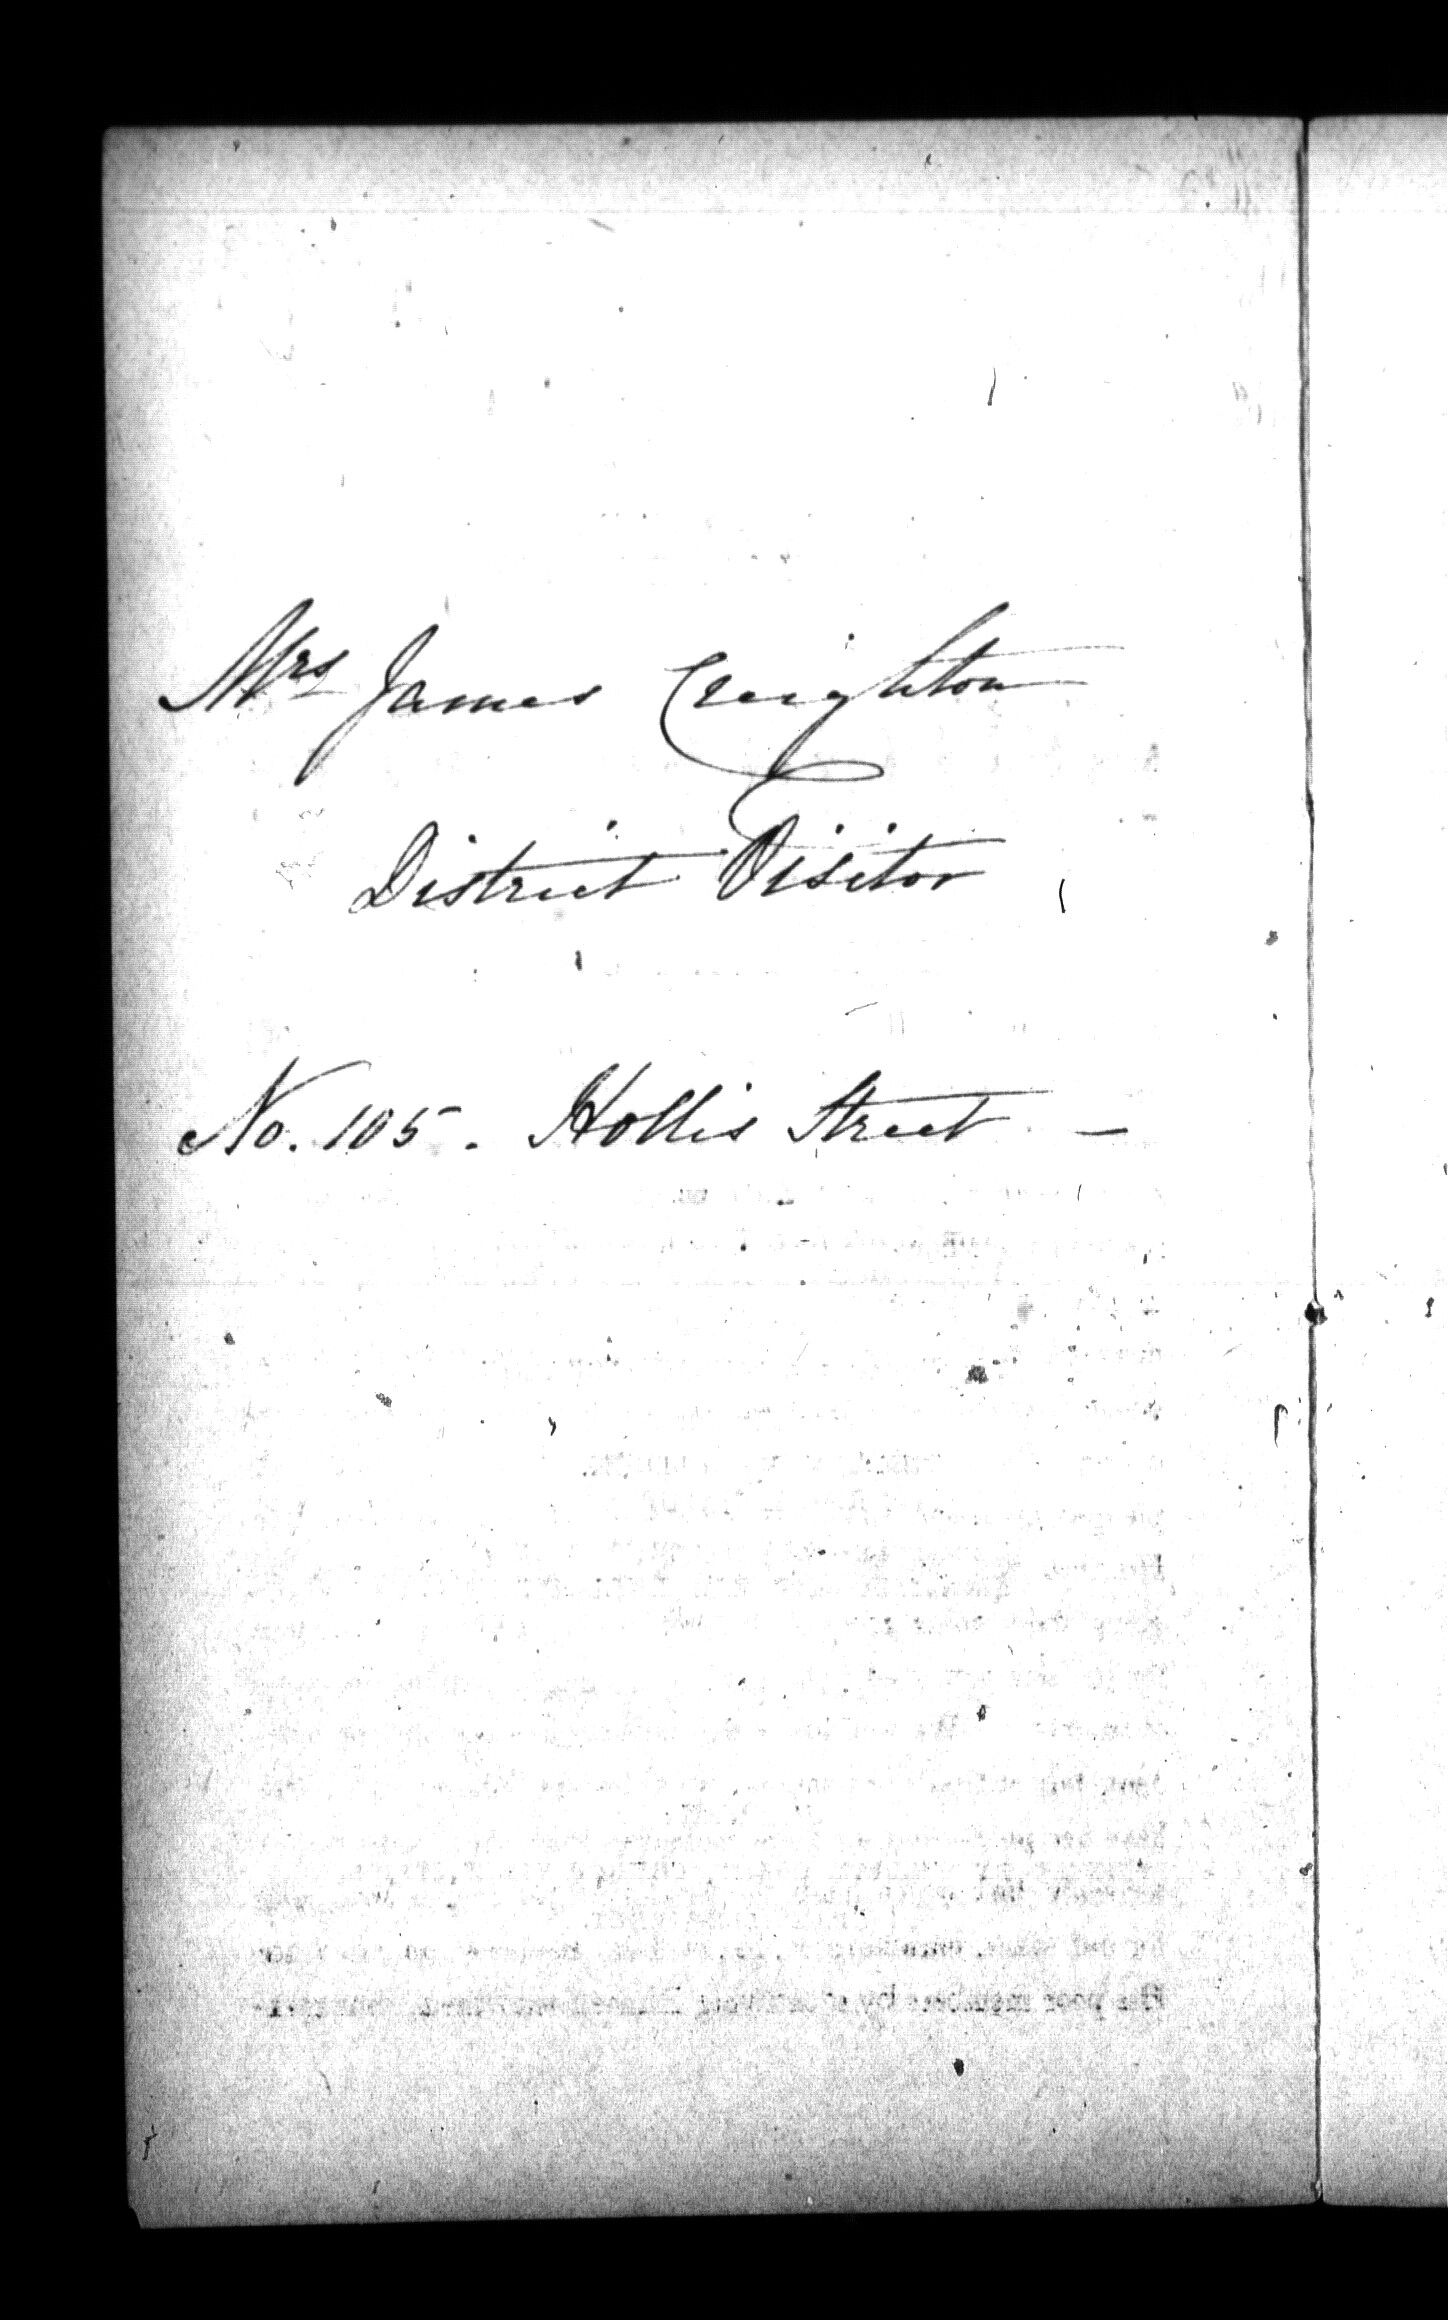 Mrs James Creighton
District Visitor
No. 105. Hollis Street —